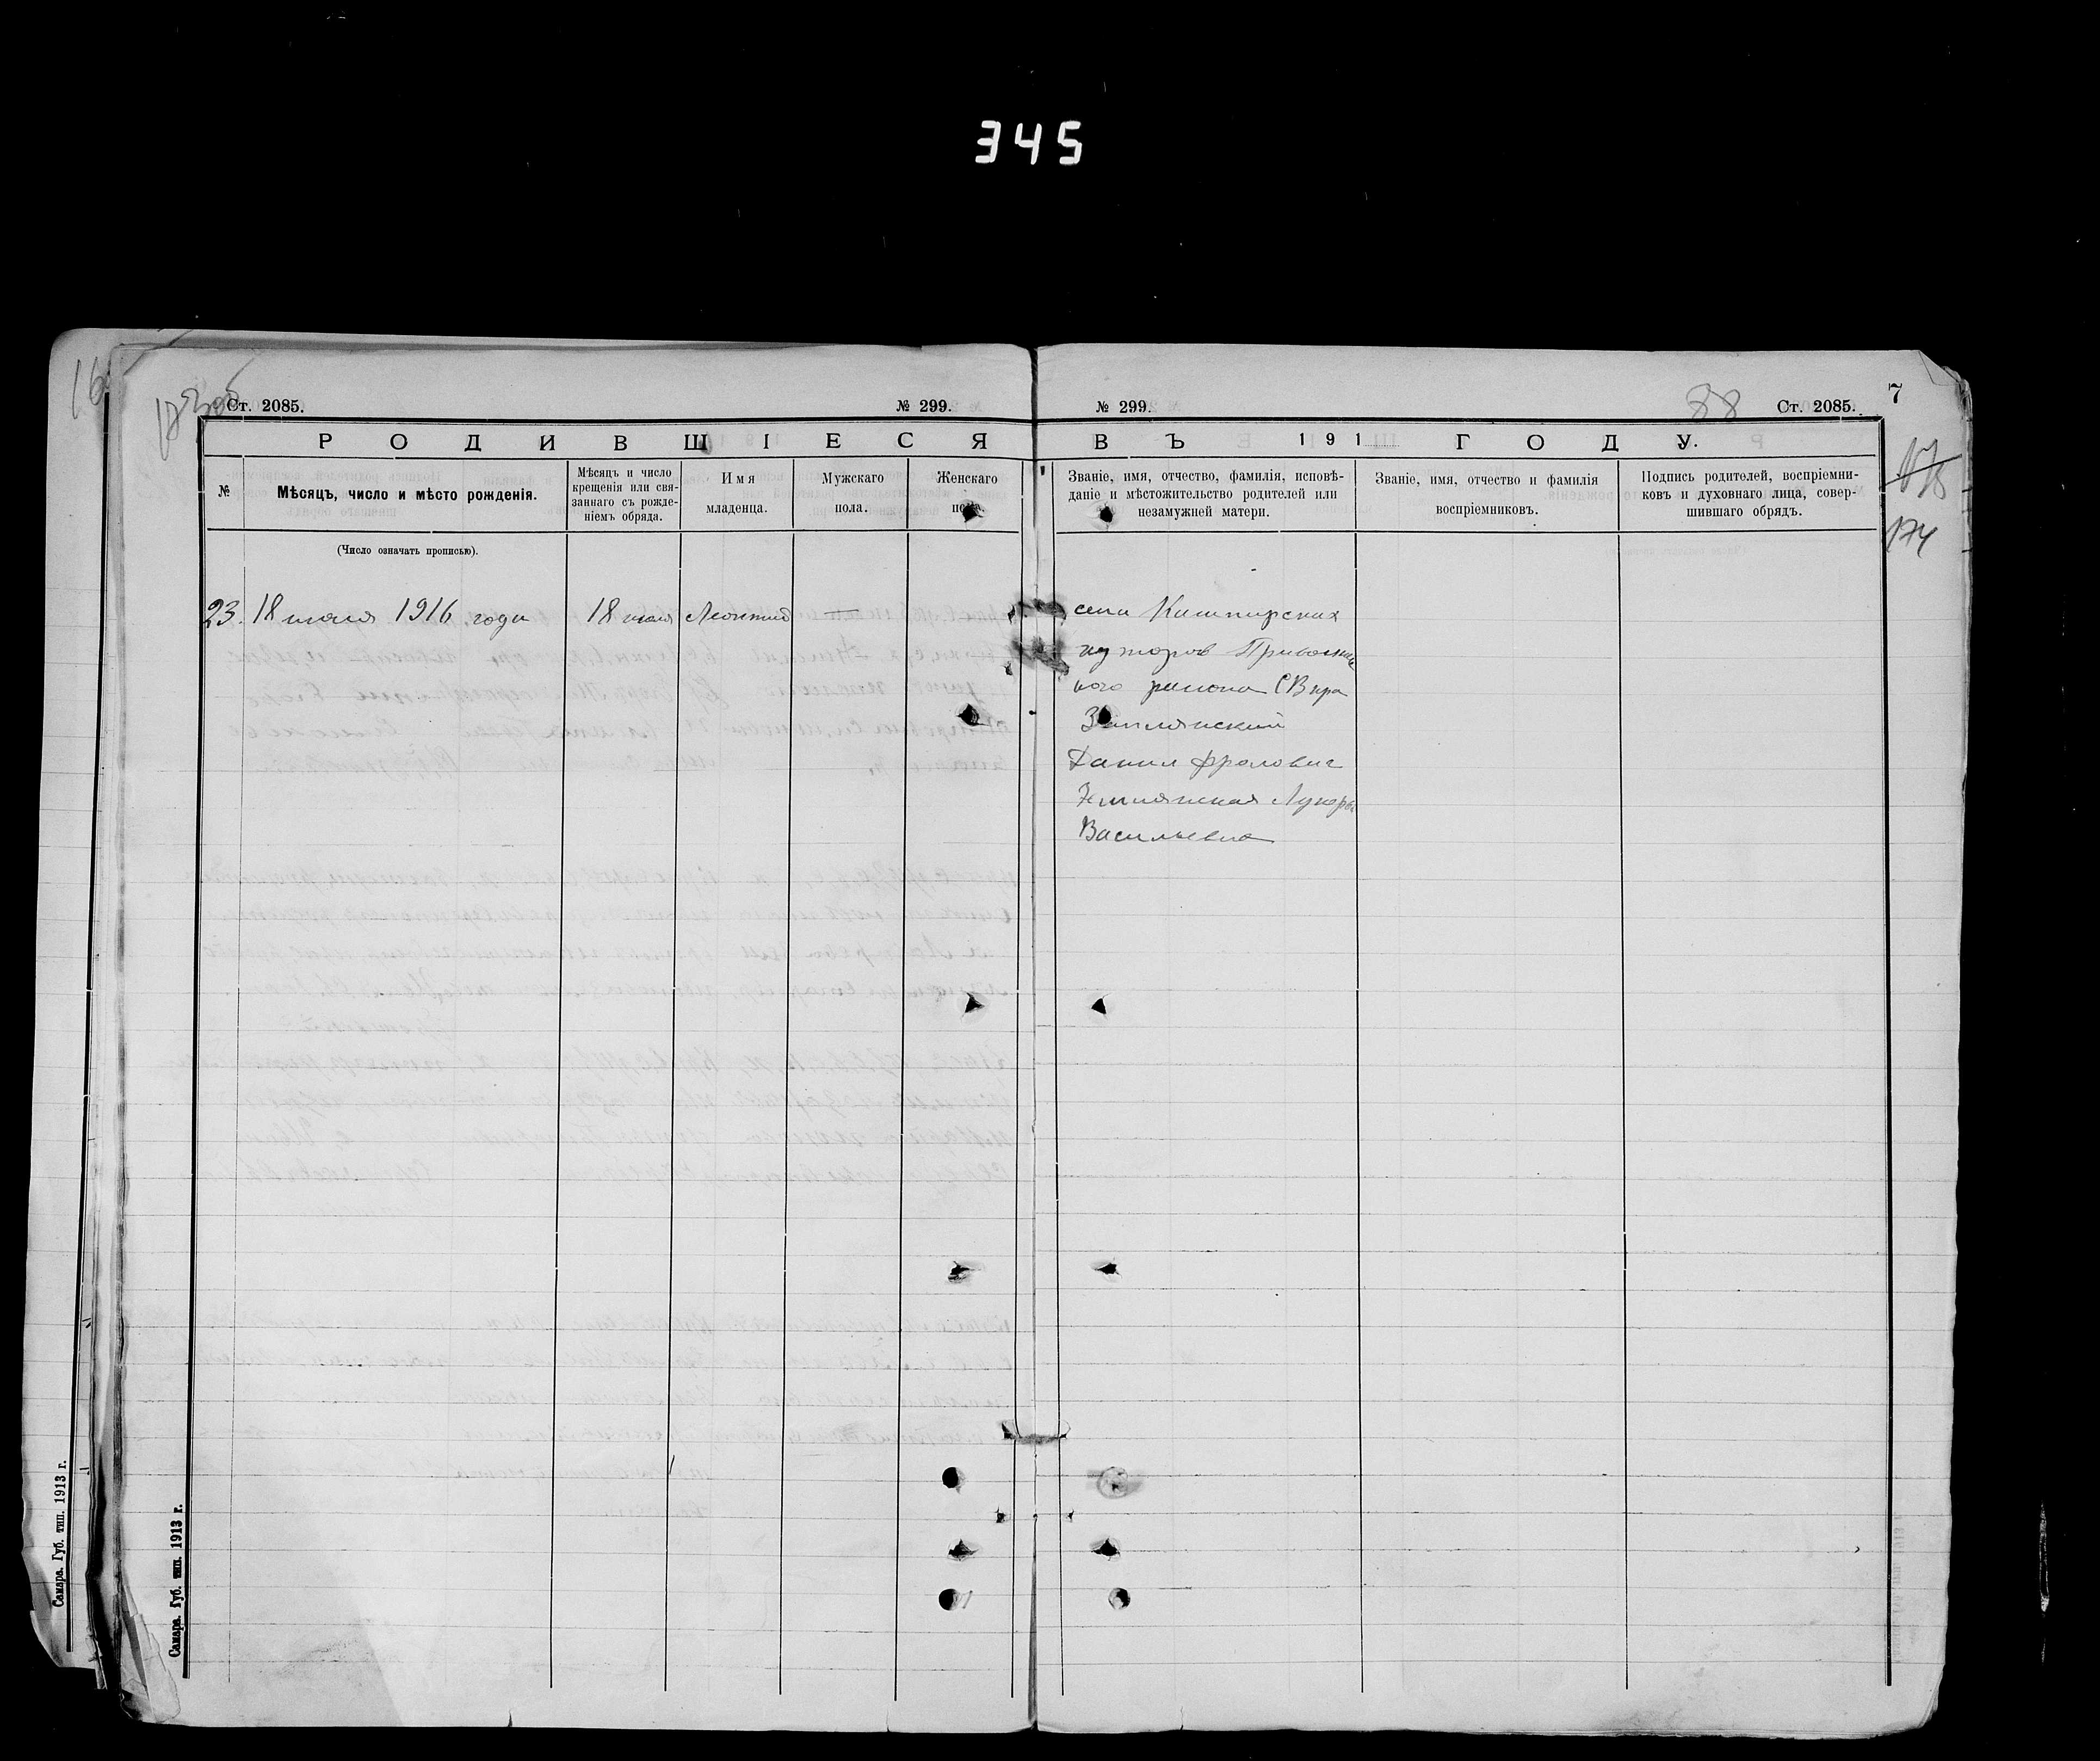 345
16
Ст. 2085.
№ 299.
№ 299.
88
Ст. 2085.
7
РОДИВШІЕСЯ
ВЪ 191 ГОДУ.
174
№
Мѣсяцъ, число и мѣсто рожденія.
Мѣсяцъ и число
крещенія или свя-
заннаго съ рожде-
ніемъ обряда.
Имя
младенца.
Мужскаго
пола.
Женскаго
пола.
Званіе, имя, отчество, фамилія, исповѣ-
даніе и мѣстожительство родителей или
незамужней матери.
Званіе, имя, отчество и фамилія
воспріемниковъ.
Подпись родителей, воспріемни-
ковъ и духовнаго лица, совер-
шившаго обрядъ.
(Число означать прописью).
23. 18 июля 1916 года 18 июля Леонтий —
села Кашпирских
хуторов
кого района СВ кра
Данил Фролович
Васильевна
Самара. Губ. тип. 1913 г.
Самара. Губ. тип. 1913 г.